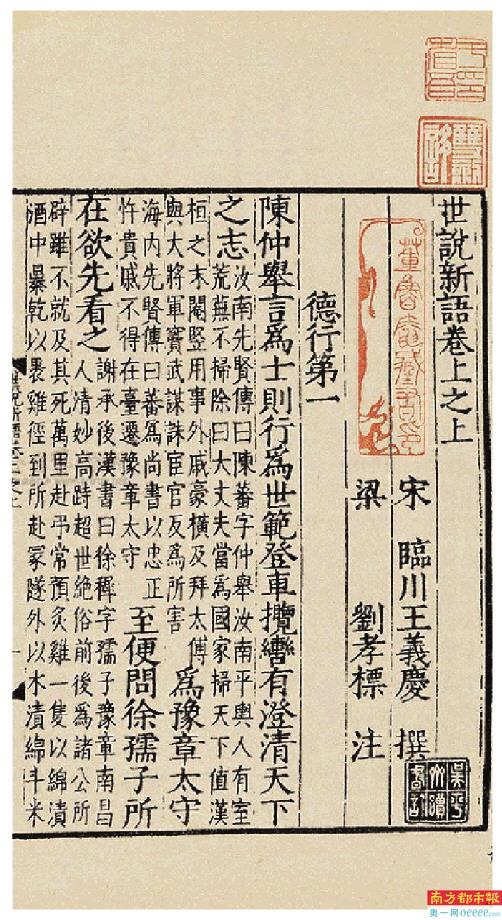 世說新語卷上之上
宋 臨川王義慶 撰
梁 劉孝標 注
德行第一
陳仲舉言爲士則行爲世範登車攬轡有澄清天下
之志
汝南先賢傳曰陳蕃字仲舉汝南平輿人有室
荒蕪不掃除曰大丈夫當爲國家掃天下值漢
桓之末閹豎用事外戚豪橫及拜太傅
與大將軍竇武謀誅宦官反爲所害
爲豫章太守
海内先賢傳曰蕃爲尚書以忠正
忤貴戚不得在臺遷豫章太守
至便問徐孺子所
在欲先看之
謝承後漢書曰徐穉字孺子豫章南昌
人清妙高跱超世絕俗前後爲諸公所
辟雖不就及其死萬里赴弔常預炙雞一隻以綿漬
酒中暴乾以裹雞徑到所赴冢隧外以水漬綿斗米
南方都市報
奥一网oeeee.com